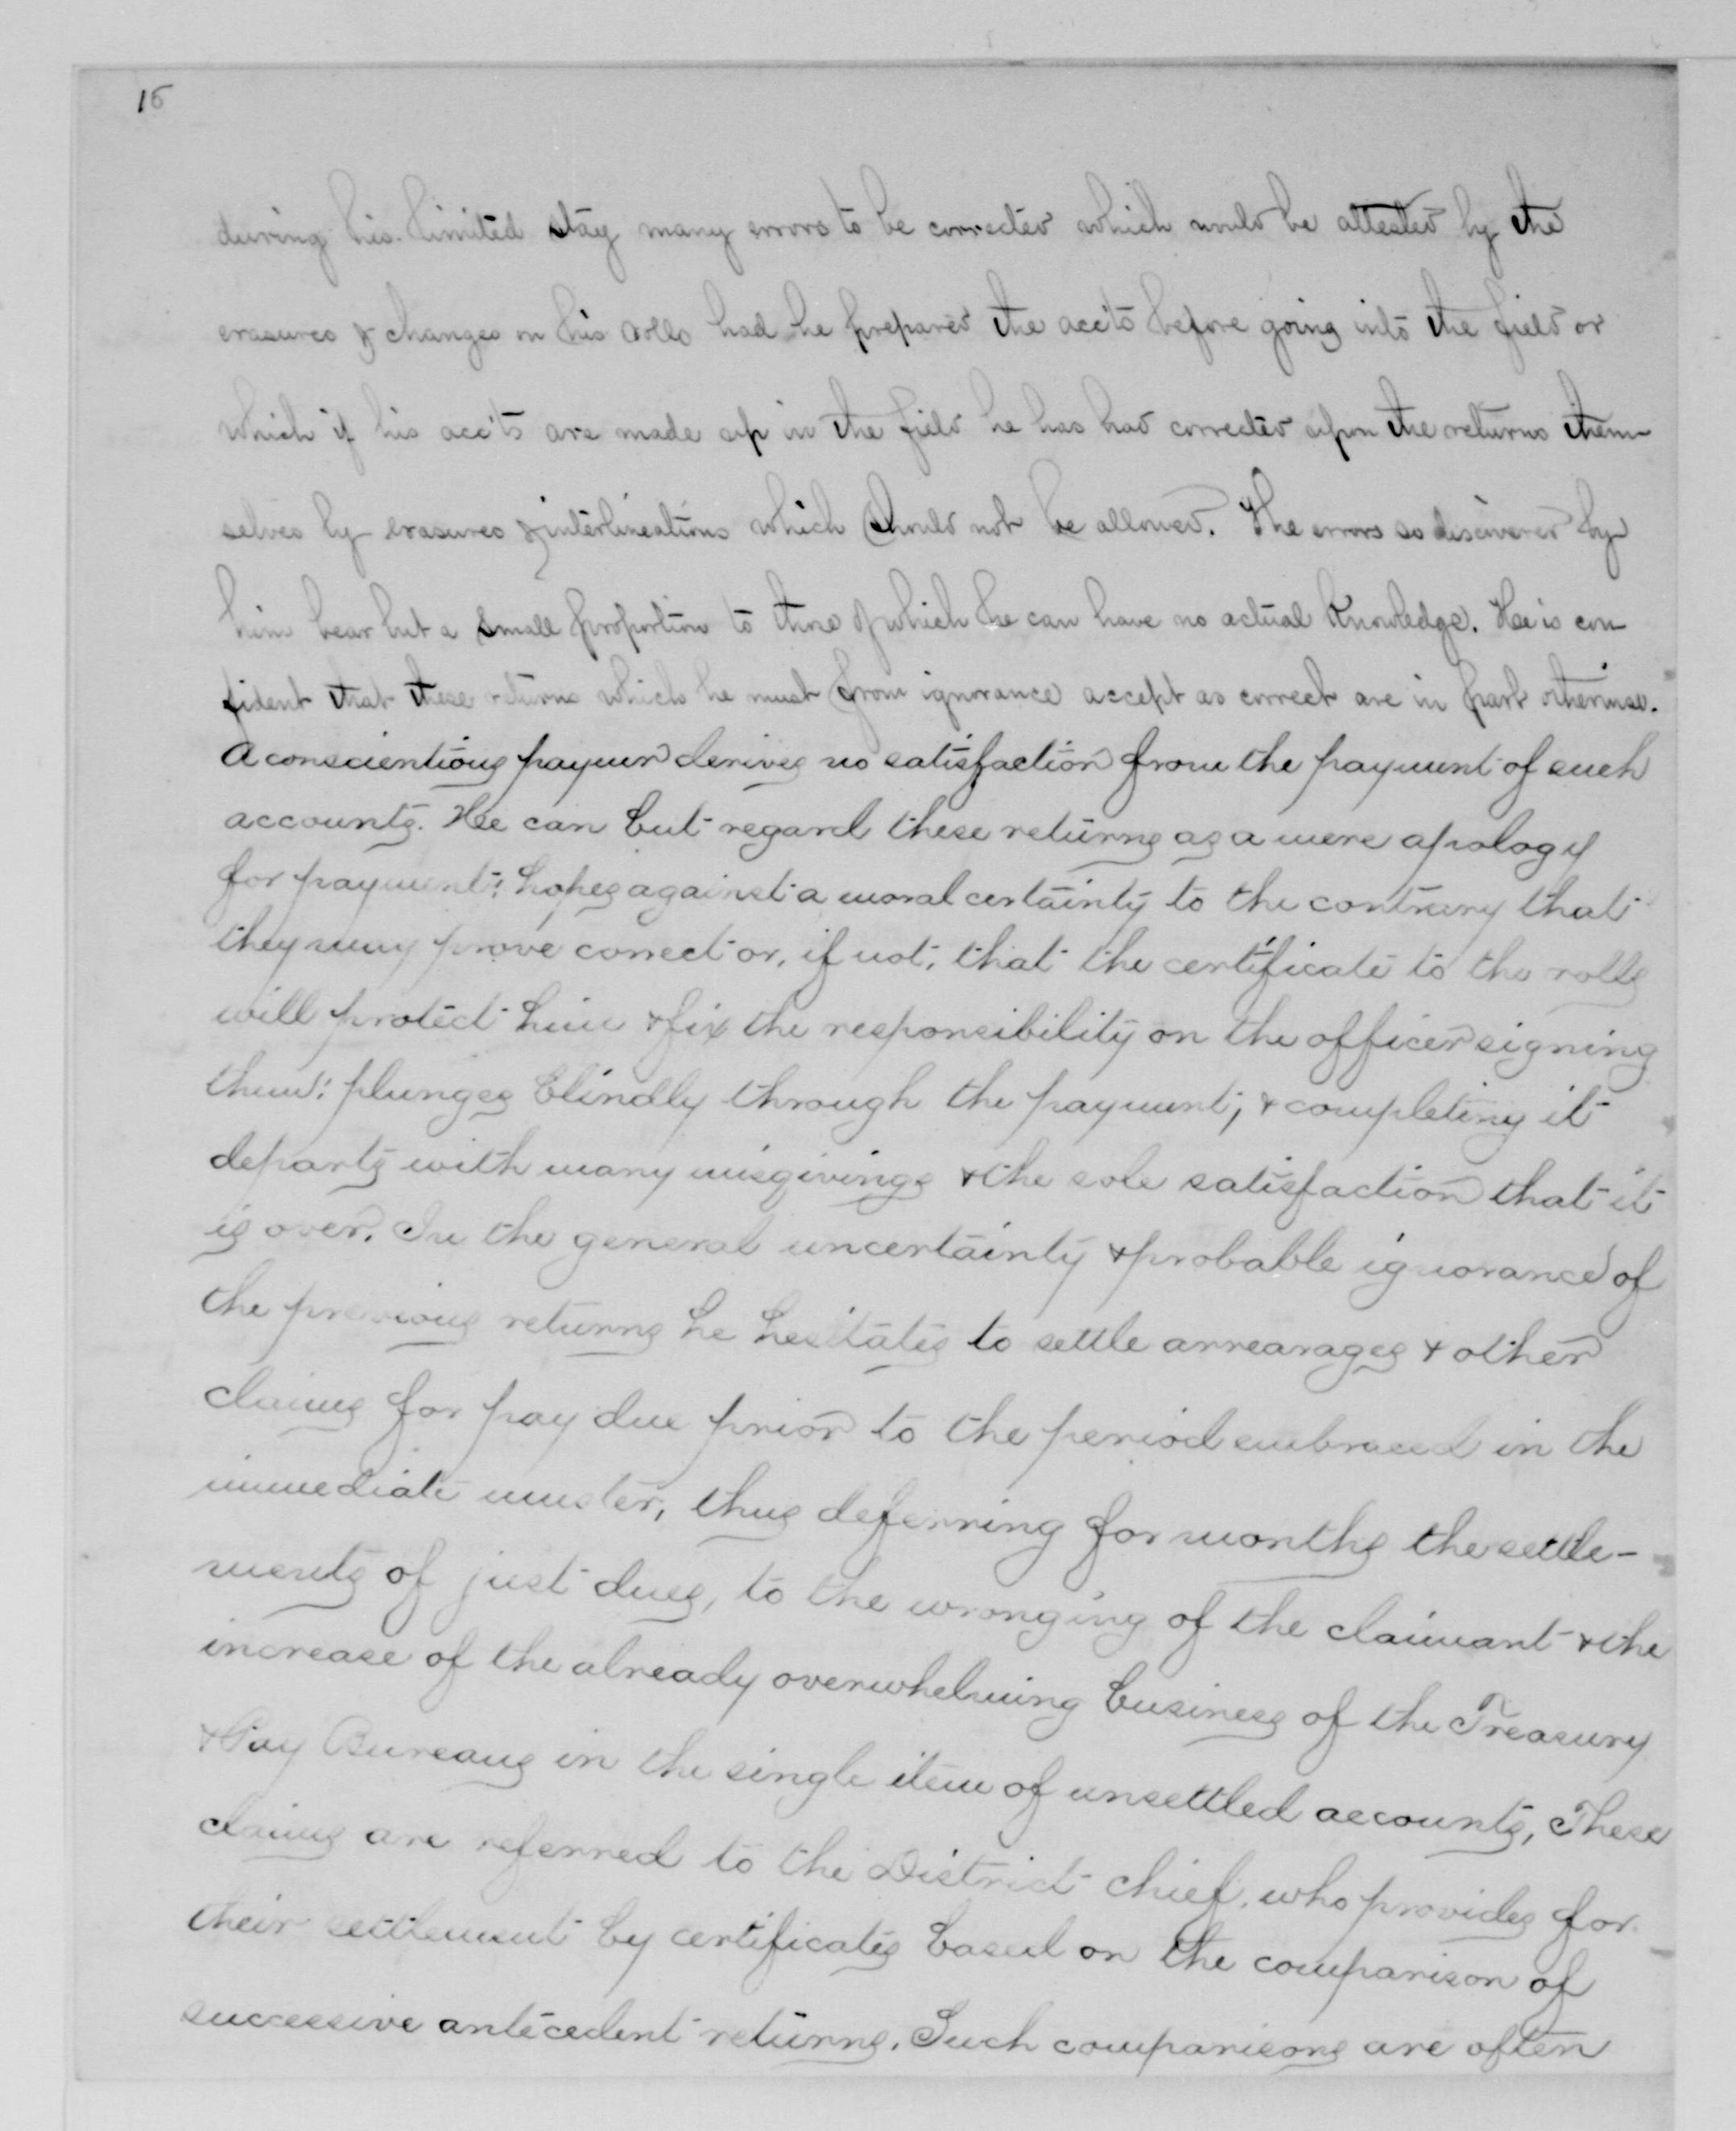 15
during his limited stay many errors to be corrected which would be attested by the
erasures & changes on his rolls had he prepared the acc'ts before going into the field or
which if his acc'ts are made up in the field he has had corrected upon the returns them-
selves by erasures & interlineations which should not be allowed. The errors so discovered by
him bear but a small proportion to those of which he can have no actual knowledge. He is con-
fident that these returns which he must from ignorance accept as correct are in part otherwise.
A conscientious paymr derives no satisfaction from the payment of such
accounts. He can but regard these returns as a mere apology
for payment; hopes against a moral certainty to the contrary that
they may prove correct or, if not, that the certificate to the rolls
will protect him & fix the responsibility on the officer signing
them; plunges blindly through the payment; & completing it
departs with many misgivings & the sole satisfaction that it
is over. In the general uncertainty & probable ignorance of
the previous returns he hesitates to settle arrearages & other
claims for pay due prior to the period embraced in the
immediate muster, thus deferring for months the settle-
ments of just dues, to the wronging of the claimant & the
increase of the already overwhelming business of the Treasury
& Pay Bureaus in the single item of unsettled accounts, These
claims are referred to the District chief, who provides for
their settlement by certificates based on the comparison of
successive antecedent returns. Such comparisons are often